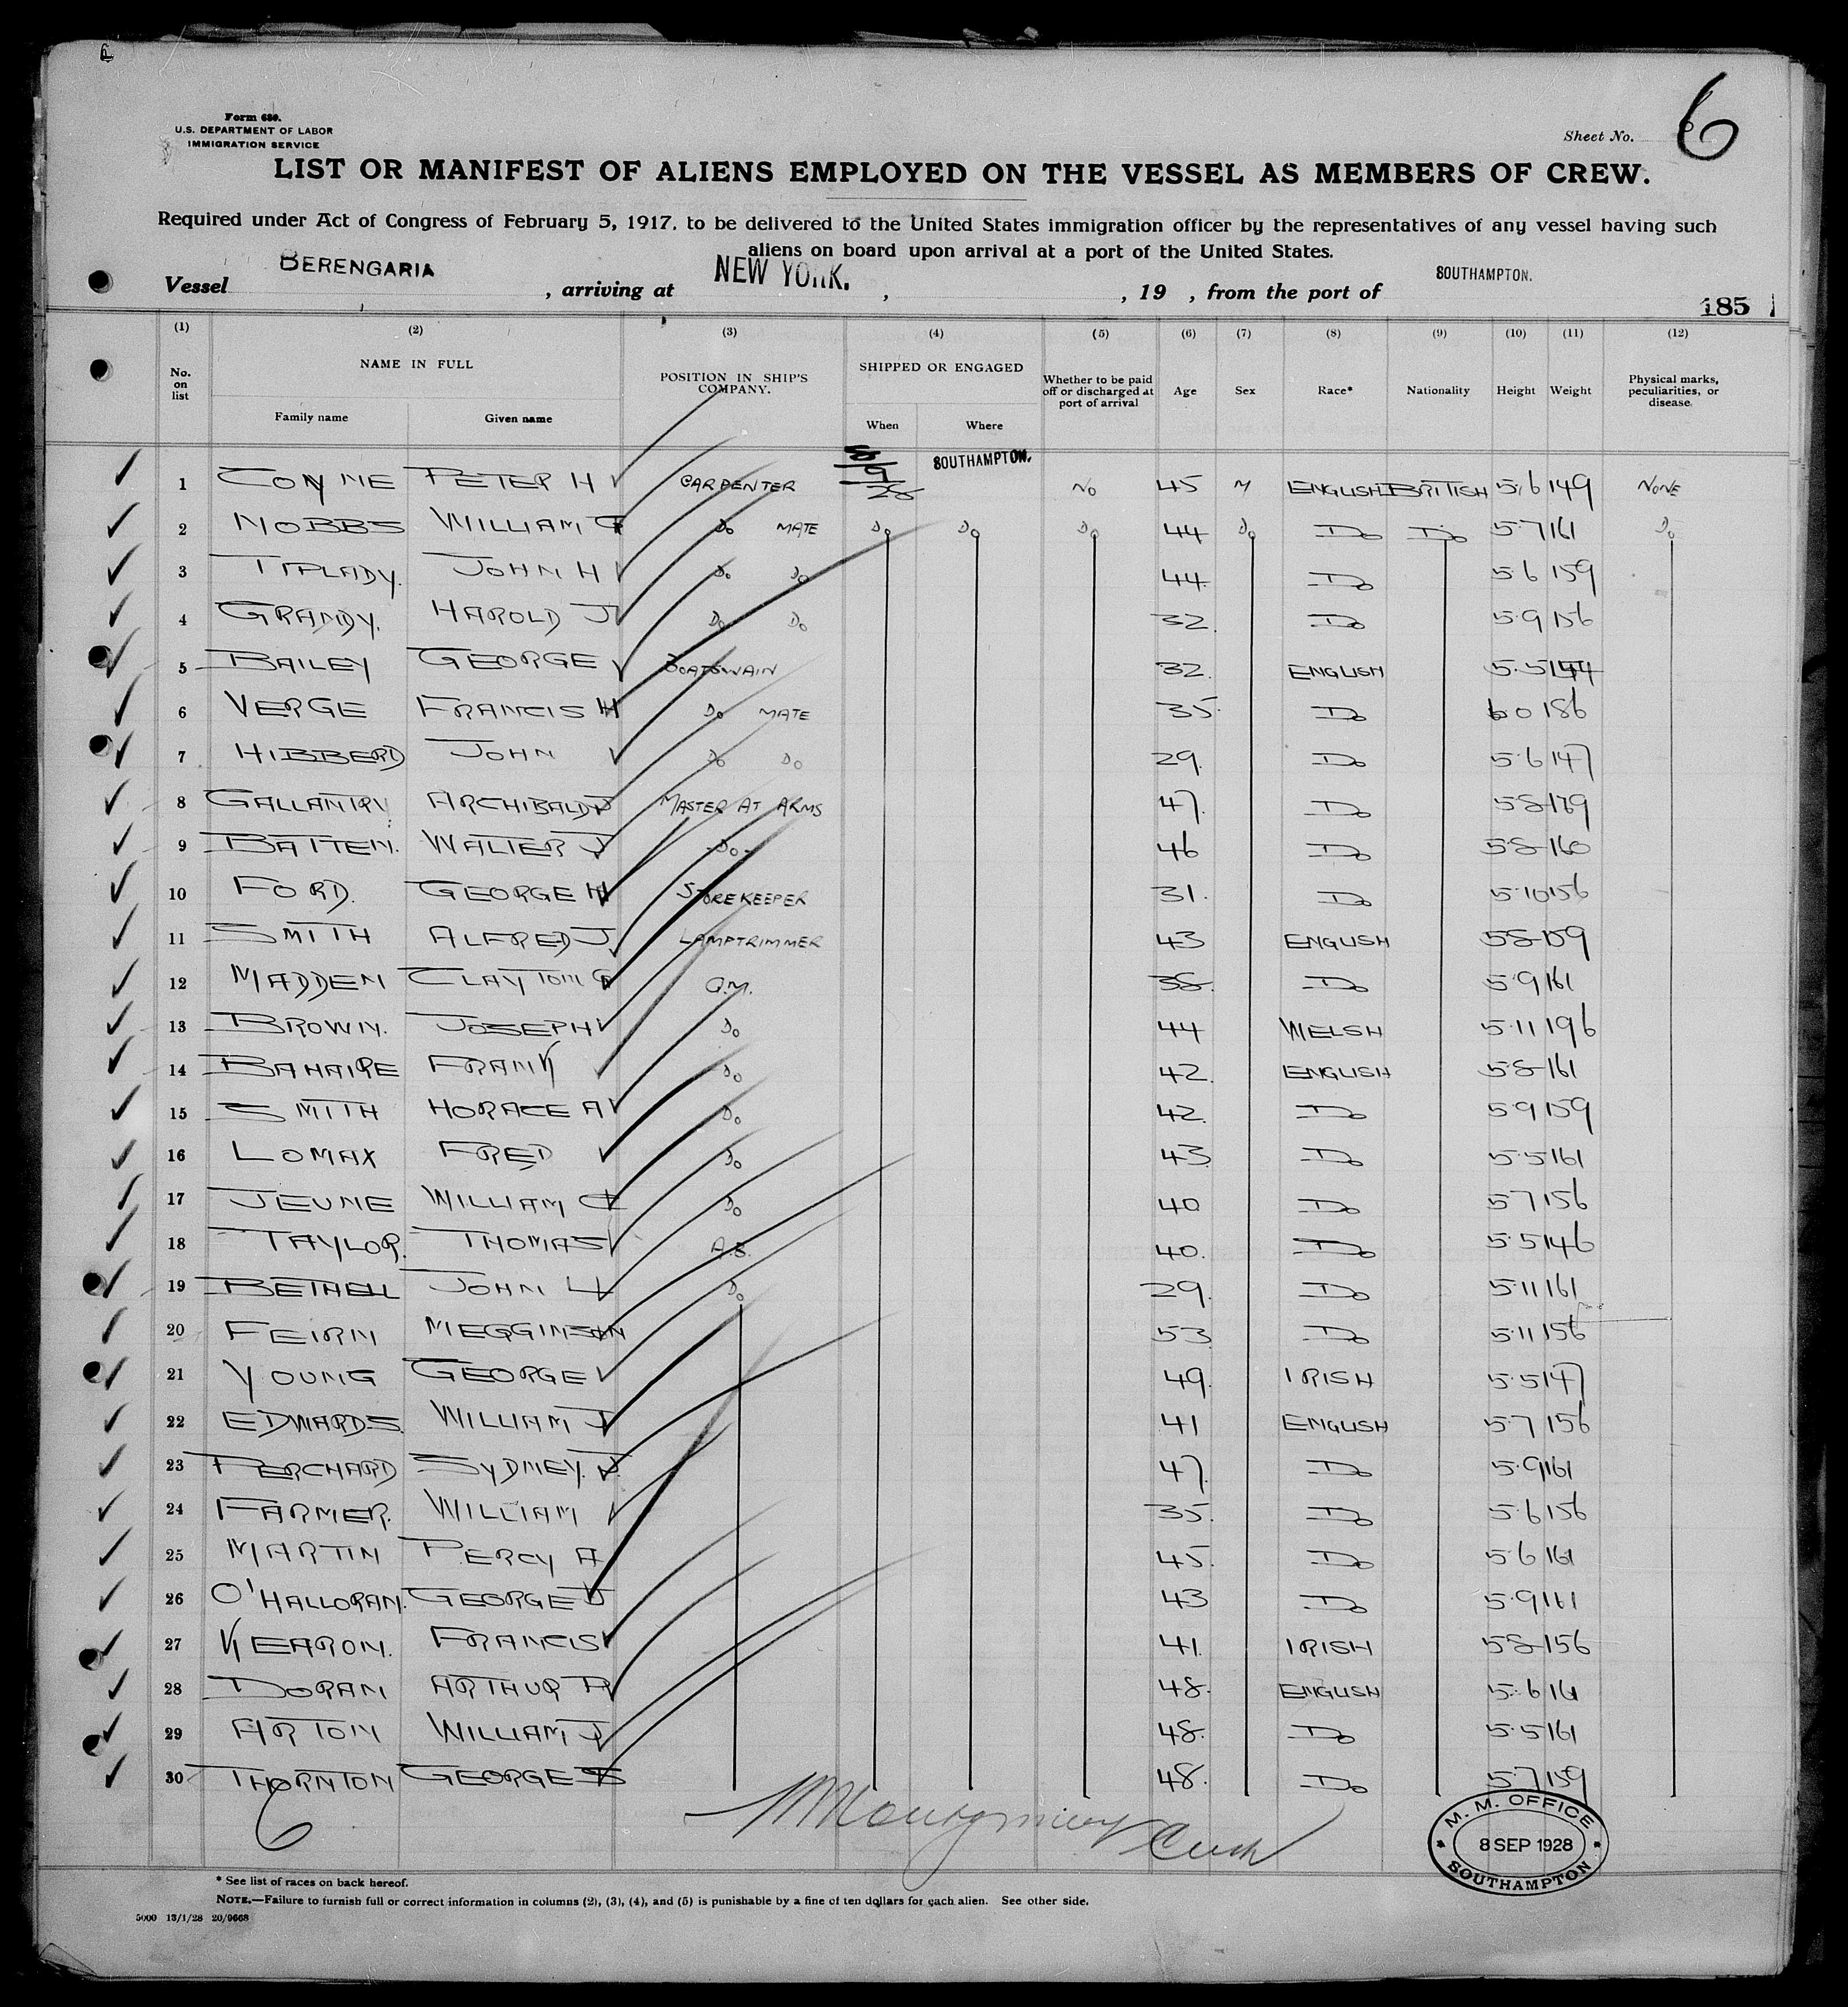 6
Form 680.
U.S. DEPARTMENT OF LABOR
IMMIGRATION SERVICE
Sheet No. 6
LIST OR MANIFEST OF ALIENS EMPLOYED ON THE VESSEL AS MEMBERS OF CREW.
Required under Act of Congress of February 5, 1917, to be delivered to the United States immigration officer by the representatives of any vessel having such
aliens on board upon arrival at a port of the United States.
Vessel BERENGARIA, arriving at NEW YORK. , , 19 , from the port of SOUTHAMPTON.
185
(1) (2) (3) (4) (5) (6) (7) (8) (9) (10) (11) (12)
No. on list NAME IN FULL POSITION IN SHIP'S COMPANY. SHIPPED OR ENGAGED Whether to be paid off or discharged at port of arrival Age Sex Race* Nationality Height Weight Physical marks, peculiarities, or disease.
Family name Given name When Where
1 CONYNE PETER H CARPENTER /9/28 SOUTHAMPTON. NO 45 M ENGLISH BRITISH 5.6 149 NONE
2 NOBBS WILLIAM G Do MATE Do Do Do 44 Do Do Do 5.7 161 Do
3 TIPLADY. JOHN H Do Do 44 Do 5.6 159
4 GRANDY. HAROLD J Do Do 32. Do 5.9 156
5 BAILEY GEORGE BOATSWAIN 32. ENGLISH 5.5 144
6 VERGE FRANCIS H Do MATE 35. Do 6 0 186
7 HIBBERD JOHN Do Do 29. Do 5.6 147
8 GALLANTRY ARCHIBALD J MASTER AT ARMS 47. Do 5.8 179
9 BATTEN. WALTER J -Do- 46 Do 5.8 160
10 FORD. GEORGE H STOREKEEPER 31. Do 5.10 156
11 SMITH ALFRED J LAMPTRIMMER 43 ENGLISH 5.8 159
12 MADDEN CLAYTON G Q.M. 38. Do 5.9 161
13 BROWN. JOSEPH Do 44 WELSH 5.11 196
14 BAHAIRE FRANK Do 42. ENGLISH 5.8 161
15 SMITH HORACE A Do 42. Do 5.9 159
16 LOMAX FRED Do 43 Do 5.5 161
17 JEUNE WILLIAM C Do 40 Do 5.7 156
18 TAYLOR. THOMAS A.B. 40. Do 5.5 146
19 BETHELL JOHN H Do 29. Do 5.11 161
20 FEIRN MEGGINSON 53 Do 5.11 156
21 YOUNG GEORGE 49. IRISH 5.5 147
22 EDWARDS. WILLIAM J 41 ENGLISH 5.7 156
23 PERCHARD SYDNEY. J. 47. Do 5.9 161
24 FARMER. WILLIAM 35. Do 5.6 156
25 MARTIN PERCY A 45. Do 5.6 161
26 O'HALLORAN. GEORGE J 43 Do 5.9 161
27 KEARON. FRANCIS 41. IRISH 5.8 156
28 DORAN ARTHUR P 48. ENGLISH 5.6 161
29 ARTON WILLIAM J 48. Do 5.5 161
30 THORNTON GEORGE S 48. Do 5.7 159
6
Montgomery
M. M. OFFICE
8 SEP 1928
SOUTHAMPTON
* See list of races on back hereof.
NOTE.—Failure to furnish full or correct information in columns (2), (3), (4), and (5) is punishable by a fine of ten dollars for each alien. See other side.
5000 13/1/28 20/9668